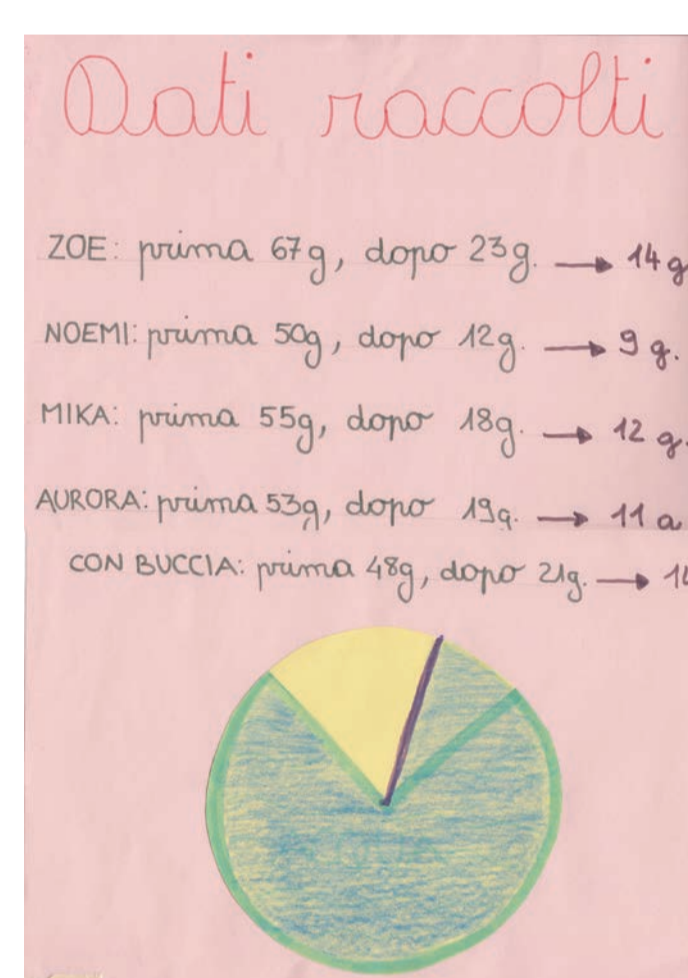 Dati raccolti
ZOE: prima 67g, dopo 23g. → 14 g
NOEMI: prima 50g, dopo 12g. → 9 g.
MIKA: prima 55g, dopo 18g. → 12 g.
AURORA: prima 53g, dopo 19g. → 11 g
CON BUCCIA: prima 48g, dopo 21g. →